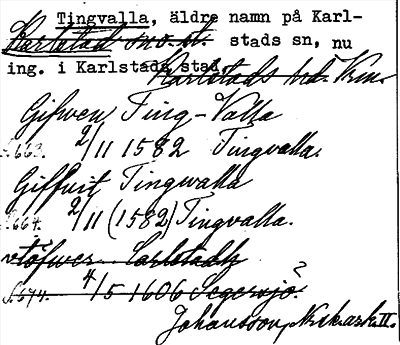 Tingvalla, äldre namn på Karl-
Karlstad sn o. st. stads sn, nu
ing. i Karlstads stad.
Karlstads hd. Vrm.
Gifwen Ting-Valla
s. 663. 2/11 1582 Tingvalla.
Giffuit Tingwalla
s. 664. 2/11 (1582) Tingvalla.
Carlstadh
s. 674. 4/5 1606 Segersjö?
Johansson, N:sk. ark. II.